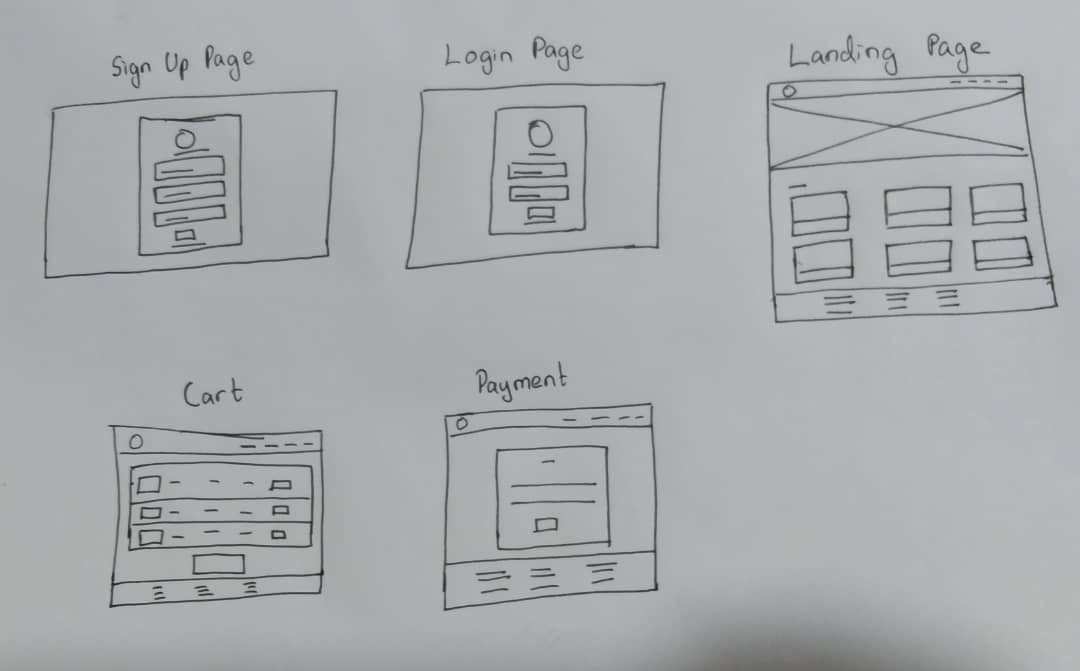 Sign Up Page
Login Page
Landing Page
Cart
Payment